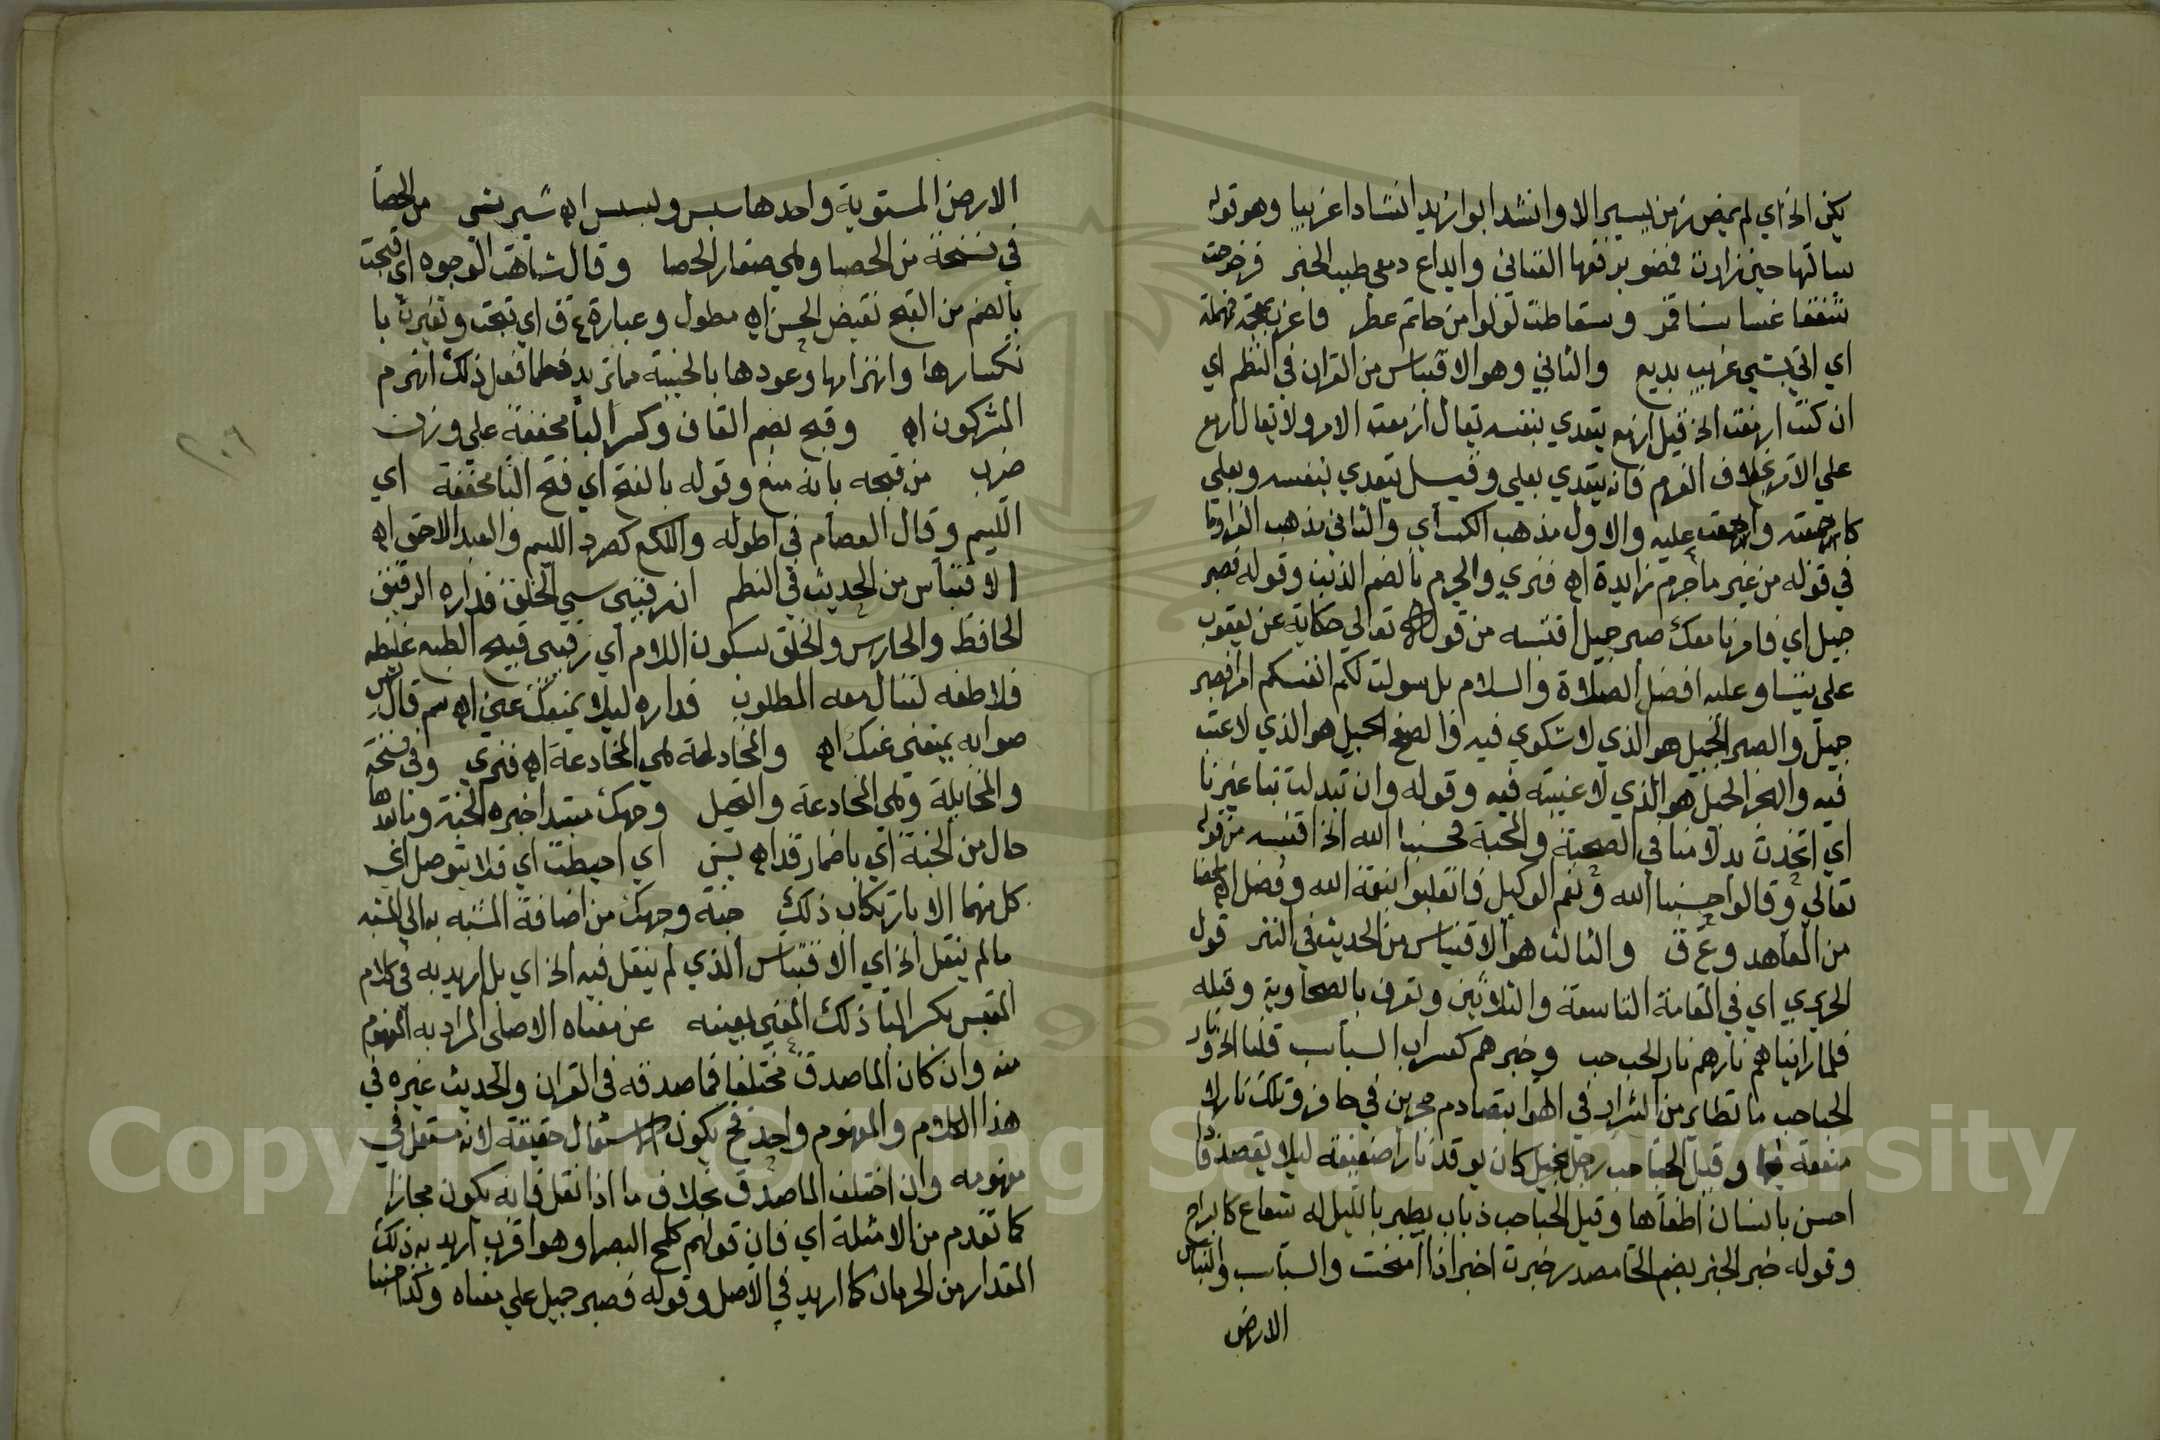 يكن الخ اي لم يمض زمن يسير الا وانشد ابو ازيد انشادا غريبا وهو قوله
سالتها حين زارت نضو برقعها القاني وايداع سمعي طيب الخبر فزحزحت
شفقا غشا سنا قمر وسقاطت لؤلوا من خاتم عطر فاغرب بمعجمة فمهملة
اي اتي بشي غريب بديع والثاني وهو الاقتباس من القران في النظم اي
ان كنت ازمعت الخ قيل ازمع يتعدي بنفسه يقال ازمعت الامر ولا يقال ازمع
علي الامر بخلاف العزم فانه يتعدي بعلي وقيل يتعدي بنفسه وبعلي
كاجمعته واجمعت عليه والاول مذهب الكسأي والثاني مذهب الفرا وما
في قوله من غير ما جرم زايدة اه فنري والجرم بالضم الذنب وقوله فصبر
جميل اي فامرنا معك صبر جميل اقتبسه من قوله تعالي حكاية عن يعقوب
علي نبينا وعليه افضل الصلاة والسلام بل سولت لكم انفسكم امرا فصبر
جميل والصبر الجميل هو الذي لا شكوي فيه والصفح الجميل هو الذي لا عتب
فيه والهجر الجميل هو الذي لا غيبة فيه وقوله وان تبدلت بنا غيرنا
اي اتخذت بدلا منا في الصحبة والمحبة فحسبنا الله الخ اقتبسه من قوله
تعالي وقالوا حسبنا الله ونعم الوكيل فانقلبوا بنعمة الله وفضل اه ملخصا
من المعاهد و ع ق والثالث هو الاقتباس من الحديث في النثر قول
الحريري اي في المقامة التاسعة والثلاثين وتعرف بالصحاوية وقبله
فلما راياهم نارهم نار الحباحب وخبرهم كسراب السباسب قلنا الخ ونار
الحباحب ما تطاير من الشرار في الهوا بتصادم حجرين في حافر وتلك نار لا
منفعة فيها وقيل الحباحب رجل بخيل كان يوقد نارا ضعيفة ليلا يقصد فاذا
احس بانسان اطفاها وقيل الحباحب ذباب يطير بالليل له شعاع كالسراج
وقوله خبر الخبر بضم الخا مصدر خبرت اخبر اذا امتحنت والسباسب والبسابس
الارض
الارض المستوية واحدها سبسب وبسبس اه شريشي من الحصا
في نسخة من الحصبا وهي صغار الحصا وقال شاهت الوجوه اي قبحت
بالضم من القبح نقيض الحسن اه مطول وعبارة ع ق اي قبحت وتغيرت با
نكسارها وانهزامها وعودها بالخيبة مما تريد فلما فعل ذلك انهزم
المشركون اه وقبح بضم القاف وكسر البا مخففة علي وزن
ضرب من قبحه بابه منع وقوله بالفتح اي فتح البا مخففة اي
اللييم وقال العصام في اطوله واللكع كصرد اللييم والعبد الاحمق اه
الاقتباس من الحديث في النظم ان رقيبي سي الخلق فداره الرقيب
الحافظ والحارس والخلق بسكون اللام اي رقيبي قبيح الطبع غليظه
فلاطفه لتنال معه المطلوب فداره ليلا يمنعك عني اه سم قال يس
صوابه يمنعني عنك اه والمخادلة هي المخادعة اه فنري وفي نسخة
والمخايلة وهي المخادعة والتحيل وجهك مبتدا خبره الجنة وما بعدها
حال من الجنة اي باضمار قد اه يس اي احيطت اي فلا يتوصل الي
كل منهما الا بارتكاب ذلك جنة وجهك من اضافة المشبه به الي المشبه
مالم ينقل الخ اي الاقتباس الذي لم ينقل فيه الخ اي بل اريد به في كلام
المقتبس بكسر البا ذلك المعني بعينه عن معناه الاصلي المراد به المفهوم
منه وان كان الماصدق مختلفا فماصدقه في القران والحديث غيره في
هذا الكلام والمفهوم واحد فح يكون الاستعمال حقيقة لانه مستعمل في
مفهومه وان اختلف الماصدق بخلاف ما اذا نقل فانه يكون مجازا
كما تقدم من الامثلة اي فان قولهم كلمح البصر او هو اقرب اريد به ذلك
المقدار من الزمان كما اريد في الاصل وقوله فصبر جميل علي معناه وكذا حسبنا
٢٠٦
Copyright © King Saud University
1957